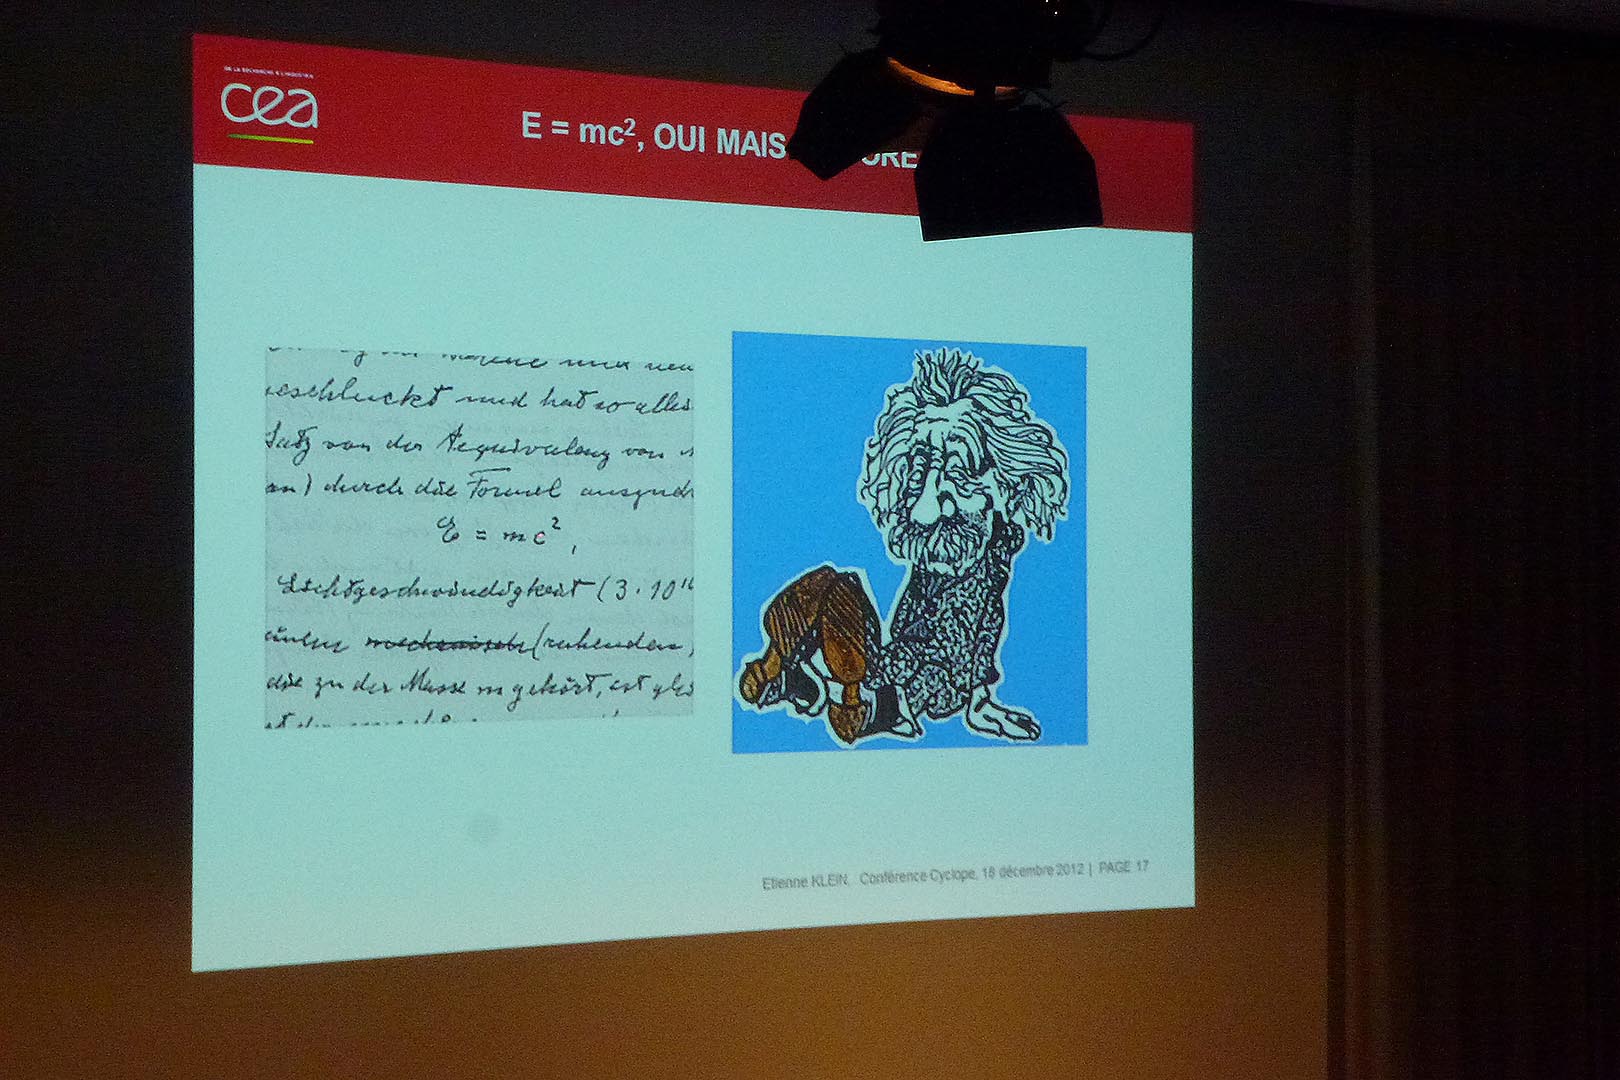 DE LA RECHERCHE À L'INDUSTRIE
cea
E = mc², OUI MAIS
und
eschluckt und hat so alles
Satz von der Aequivalenz von
an) durch die Formel ausgedr
E = mc²,
Lichtgeschwindigkeit (3 . 10
mechanisch (ruhenden
die zu der Masse m gehört, ist glei
Etienne KLEIN, Conférence Cyclope, 18 décembre 2012 | PAGE 17